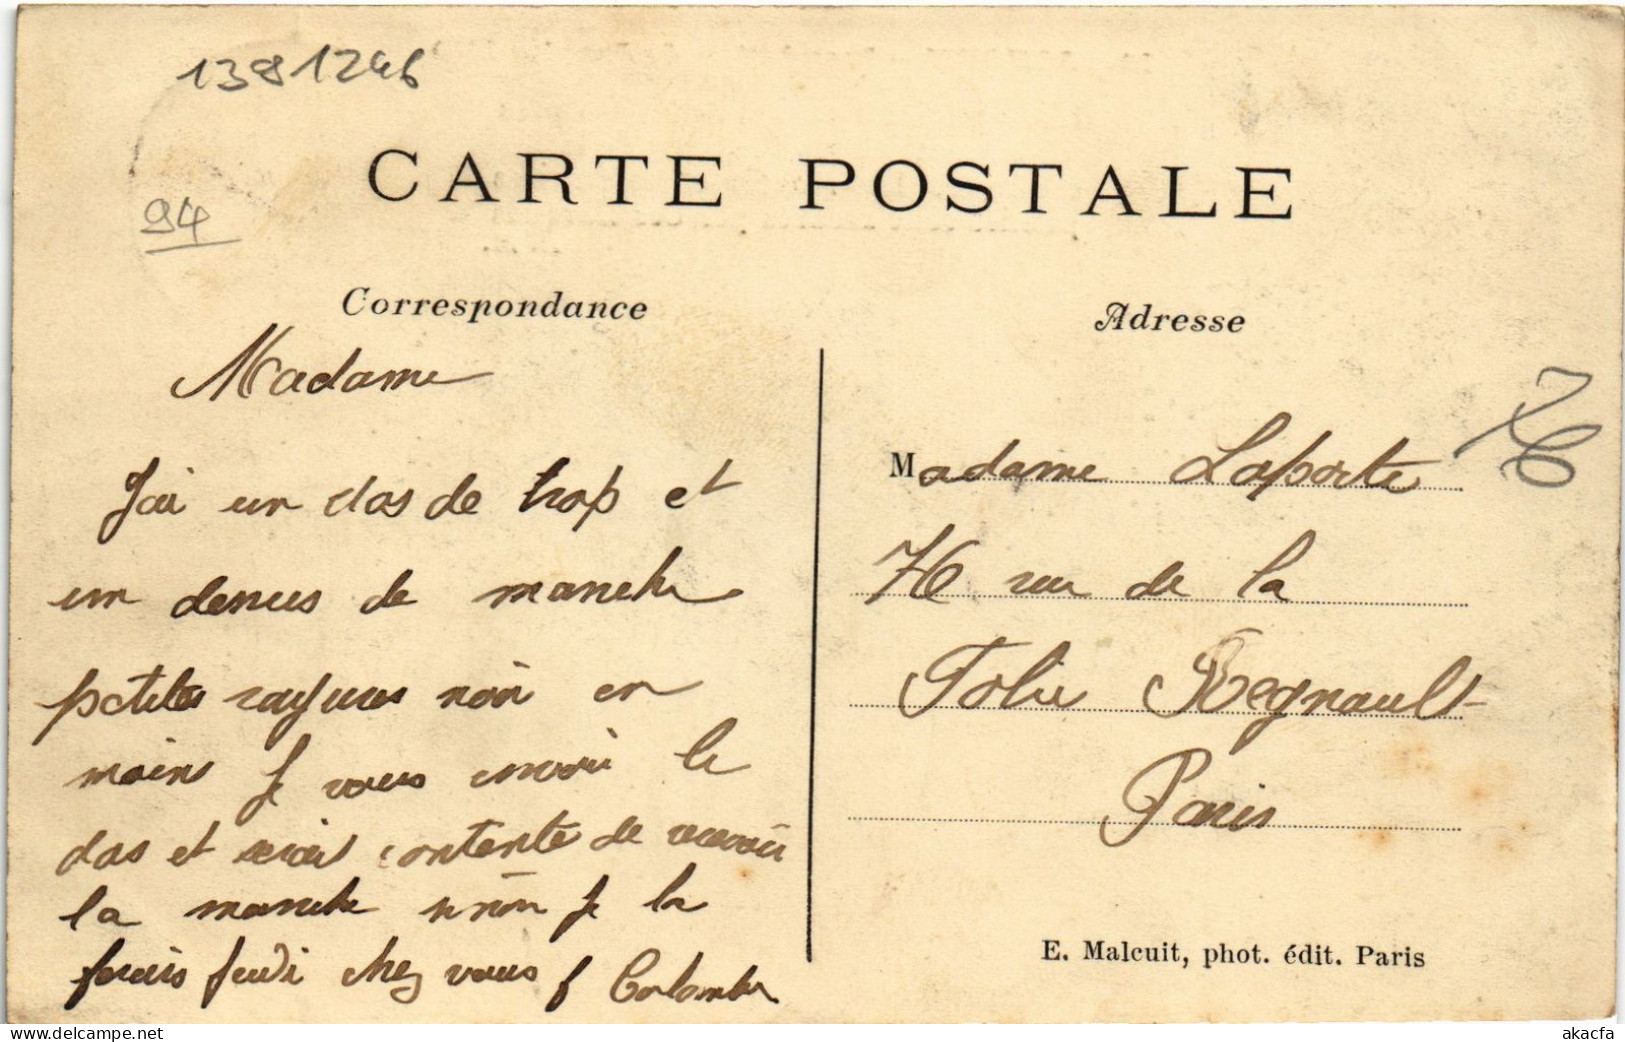 1381246
CARTE POSTALE
94
Correspondance
Adresse
Madame
J'ai un dos de trop et
un denus de manche
petites rayures noir en
moins je vous envoie le
dos et serais contente de recevoir
la manche sinon je la
ferais jeudi chez vous
Colomba
Madame Laporte
76 rue de la
Folie Regnault
Paris
E. Malcuit, phot. édit. Paris
akacfa
www.delcampe.net